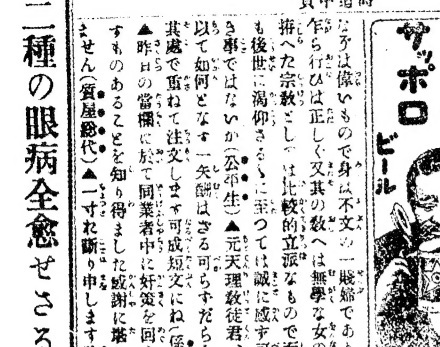 サッポロ
ビール
な方は偉いもので身は不文の一賤婦であり
乍ら行ひは正しく又其の教へは無學な女の
拵へた宗敎としては比較的立派なもので而
も後世に渇仰さるゝに至つては誠に感ず可
き事ではないか(公平生)▲元天理敎徒君を
以て如何となす一矢酬はざる可らずだら
其處で重ねて注文します可成短文にね(係
▲昨日の當欄に於て同業者中に奸策を回
すものあることを知り得ました感謝に堪
ません(質屋總代)▲一寸れ斷り申します
二種の眼病全愈せざる